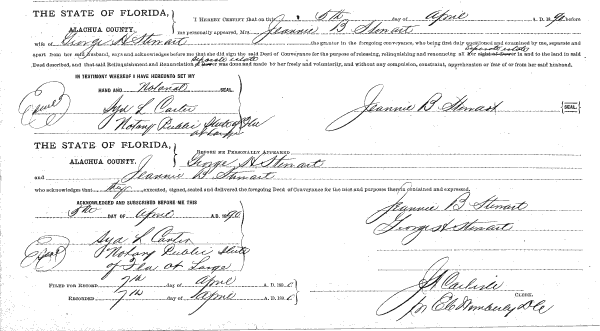 THE STATE OF FLORIDA,
ALACHUA COUNTY.
I HEREBY CERTIFY that on this 5th day of April A. D. 189 before
me personally appeared, Mrs. Jeannie B Stewart
wife of George H Stewart the grantor in the foregoing conveyance, who being first duly questioned and examined by me, separate and
apart from her said husband, says and acknowledges before me that she did sign the said Deed of Conveyance for the purpose of releasing, relinquishing and renouncing all her right of Dower separate estate in and to the land in said
Deed described, and that said Relinquishment and Renunciation of Dower separate estate was done and made by her freely and voluntarily, and without any compulsion, constraint, apprehension or fear of or from her said husband.
IN TESTIMONY WHEREOF I HAVE HEREUNTO SET MY
HAND AND Notarial SEAL.
Seal
Syd L Carter
Notary Public State of Fla
at Large
Jeannie B Stewart SEAL
THE STATE OF FLORIDA,
ALACHUA COUNTY.
BEFORE ME PERSONALLY APPEARED George H Stewart
and Jeannie B Stewart
who acknowledges that they executed, signed, sealed and delivered the foregoing Deed of Conveyance for the uses and purposes therein contained and expressed.
ACKNOWLEDGED AND SUBSCRIBED BEFORE ME THIS
5th DAY OF April A.D. 189
Jeannie B Stewart
George H Stewart
Seal
Syd L Carter
Notary Public State
of Fla At Large
FILED FOR RECORD 7th day of April A. D. 189
RECORDED 7th day of April A. D. 189
CLERK.